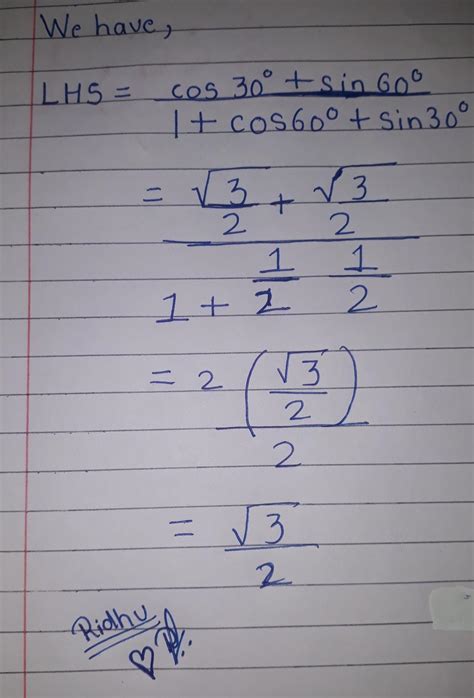 We have,
LHS = cos 30° + sin 60° / 1 + cos60° + sin30°
= √3/2 + √3/2 / 1 + 1/2 1/2
= 2 (√3/2) / 2
= √3/2
Ridhu